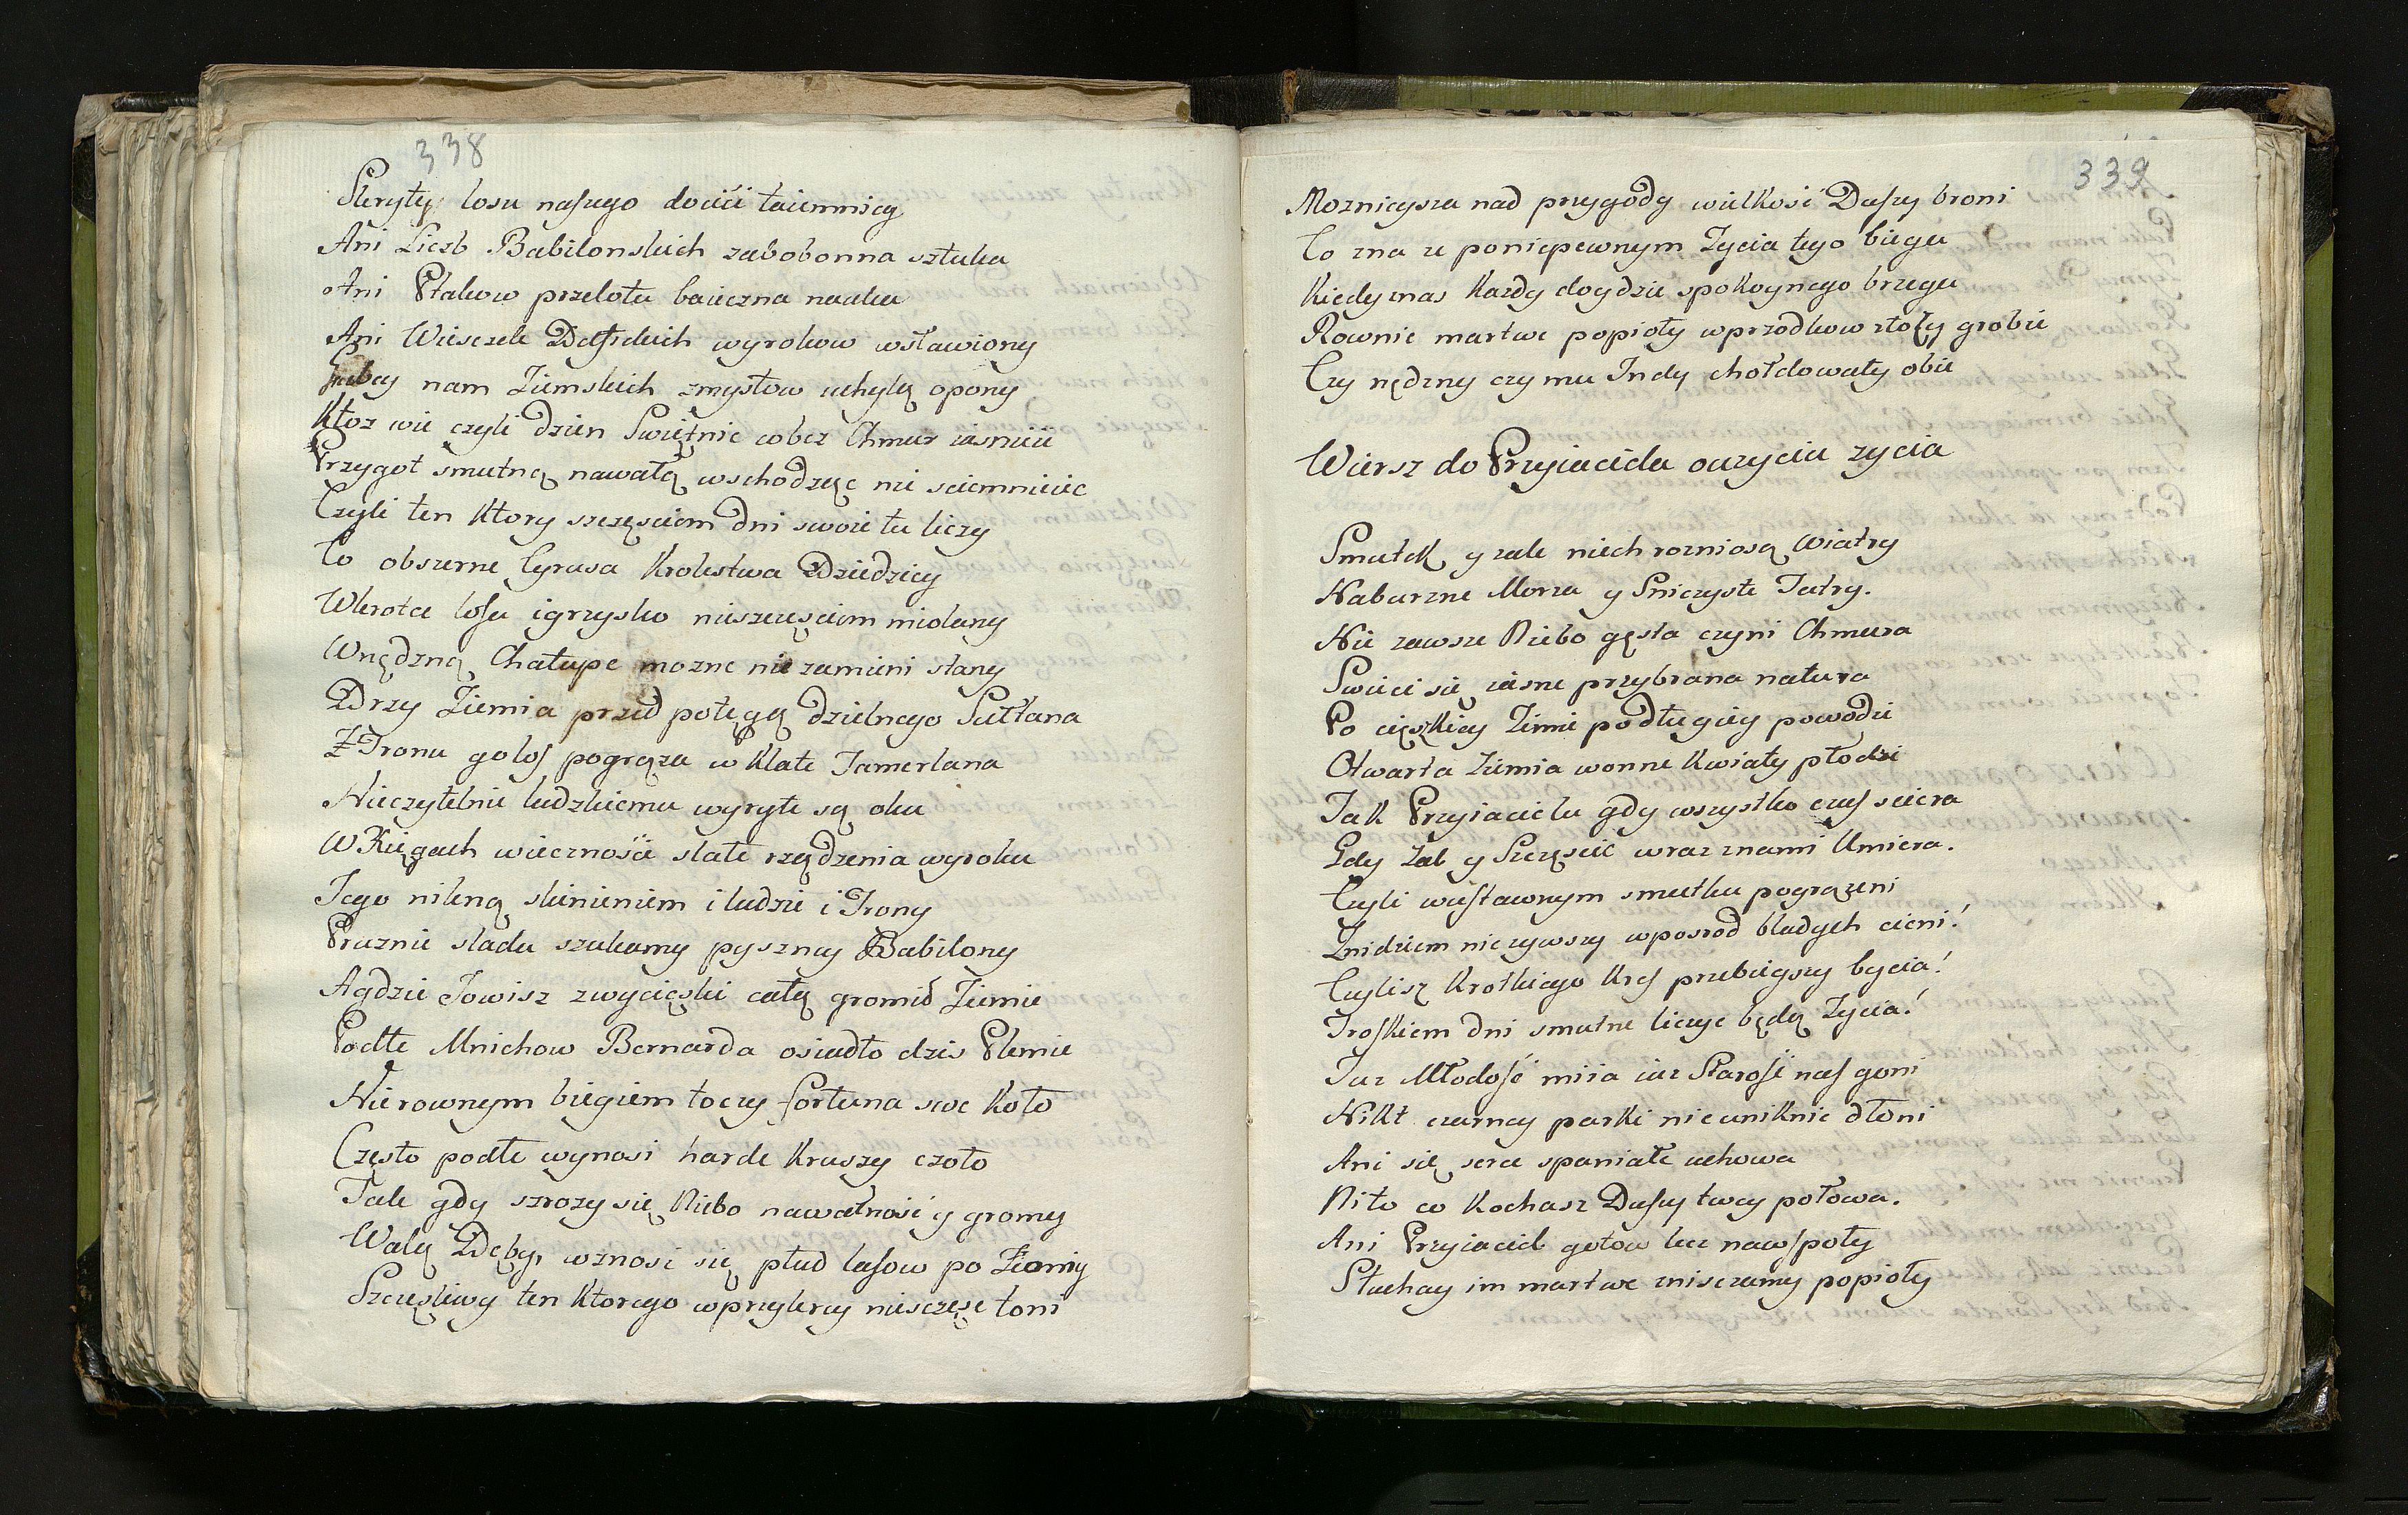 338
Skrytey losu naszego dociec taiemnicy
Ani Liczb Babilonskich zabobonna sztuka
Ani Ptakow przelotu baieczna nauka
Ani Wieszcek Delfickich wyrokow wsławiony
nam Ziemskich zmysłow uchylą opony
Ktoz wie czyli dzien Swietnie wbez Chmur iasnieie
Przygot smutną nawałą wschodząc nie sciemnieie
Czyli ten Ktory szczęsciem dni swoie tu liczy
Co obszerne Cyrusa Krolestwa Dziedziczy
Wkrotce losu igrzysko nieszczęsciem miotany
Wnędzną Chałupe mozne nie zamieni stany
Drzy Ziemia przed potęgą dzielnego Sułtana
Z Tronu go los pogrąza w Klate Tamerlana
Nieczytelnie ludzkiemu wyryte są oku
W Xięgach wiecznosci stałe rządzenia wyroku
Jego nikną skinieniem i ludzie i Trony
Proznie sladu szukamy pyszney Babilony
Agdzie Jowisz zwycięski całą gromił Ziemie
Podłe Mnichow Bernarda osiadło dzis Plemie
Nierownym biegiem toczy fortuna swe Koło
Często podłe wynosi harde Kruszy czoło
Tak gdy szrozy się Niebo nawałnosć y gromy
Walą Dęby, wznosi się płud lasow po Ziomy
Szczęsliwy ten Ktorego wprzykrey niesczęsc toni
339
Moznieysza nad przygody wielkosć Duszy broni
Co zna ze poniepewnym Zycia tego biegu
Kiedyznas Kazdy doydzie spokoynego brzegu
Rownie martwe popioły wprzodkow złozy grobie
Czy nędzny czy mu Indy chołdowały obie
Wiersz do Przyiaciela ouzyciu zycia
Smutek y zale niech rozniosą Wiatry
Naburzne Morza y Sniezyste Tatry.
Nie zawsze Niebo gęsta czyni Chmura
Swieci się iasne przybrana natura
Po cięszkiey Zimie podługiey powodzi
Otwarta Ziemia wonne Kwiaty płodzi
Tak Przyiacielu gdy wszystko czas sciera
Gdy Zal y Szczęscie wraz znami Umiera.
Czyli wustawnym smutku pogrązeni
Znidziem niezywszy wposrod bladych cieni!
Czylisz Krotkiego Kres przebiegszy bycia!
Troskiem dni smutne liczyc będą Zycia!
Juz Młodosć miia iuz Starosć nas goni
Nikt czarney parki nieuniknie dłoni
Ani się serce spaniałe uchowa
Ni to co Kochasz Duszy twey połowa.
Ani Przyiaciel gotow lec nawspoły
Słuchay im martwe zniszczamy popioły